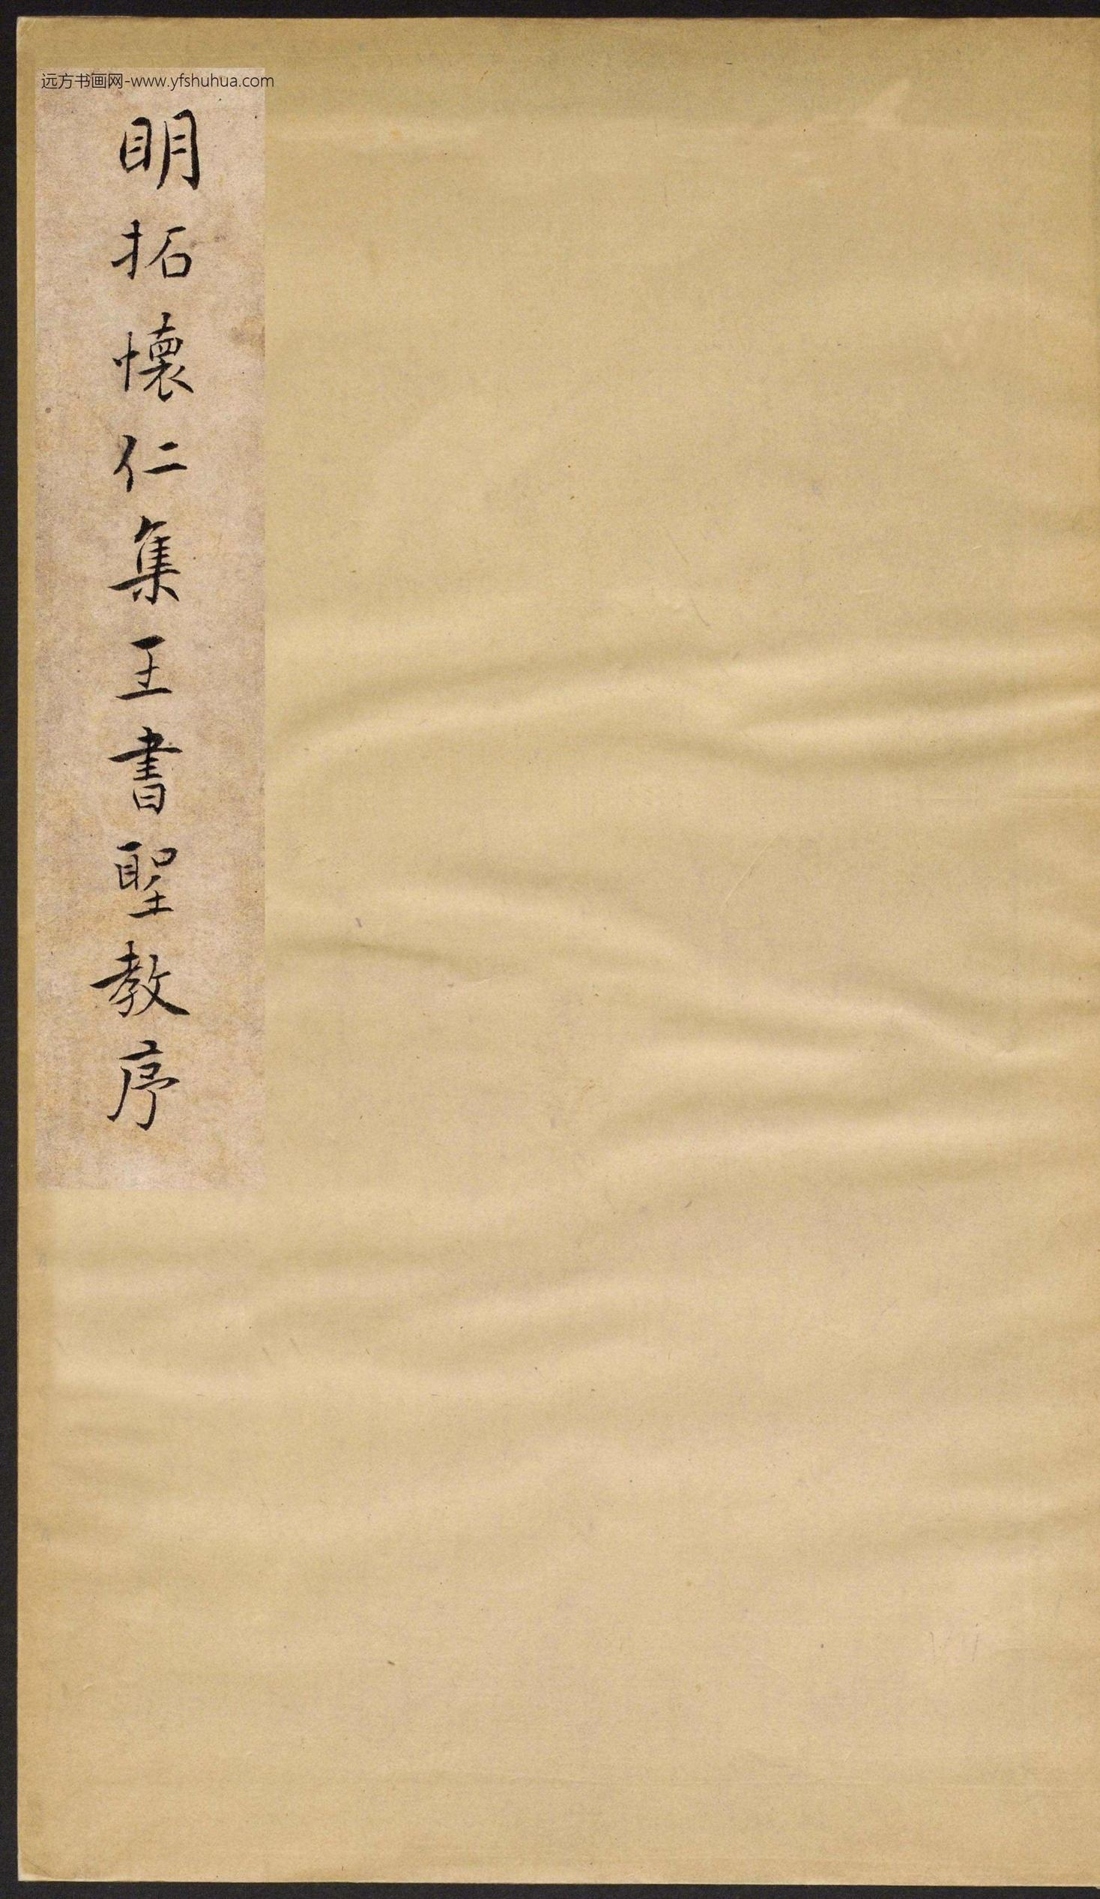 远方书画网-www.yfshuhua.com
明拓懷仁集王書聖教序